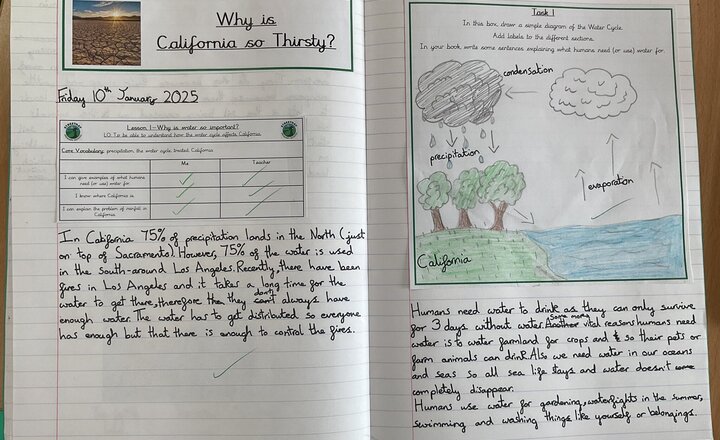 Why is
California so Thirsty?
Friday 10th January 2025
Lesson 1 – Why is water so important?
LO: To be able to understand how the water cycle affects California.
Core Vocabulary: precipitation, the water cycle, treated, California
Me
Teacher
I can give examples of what humans
need (or use) water for.
I know where California is.
I can explain the problem of rainfall in
California
In California 75% of precipitation lands in the North (just
on top of Sacramento). However, 75% of the water is used
in the south-around Los Angeles. Recently, there have been
fires in Los Angeles and it takes a long time for the
water to get there, therefore the they can't don't always have
enough water. The water has to get distributed so everyone
has enough but that there is enough to control the fires.
Task 1
In this box, draw a simple diagram of the Water Cycle.
Add labels to the different sections.
In your book, write some sentences explaining what humans need (or use) water for.
condensation
precipitation
evaporation
California
Humans need water to drink as they can only survive
for 3 days without water. Another Some more vital reasons humans need
water is to water farmland for crops and so their pets or
farm animals can drink. Also we need water in our oceans
and seas so all sea life stays and water doesn't
completely disappear.
Humans use water for gardening, waterfights in the summer,
swimming and washing things like yourself or belongings.